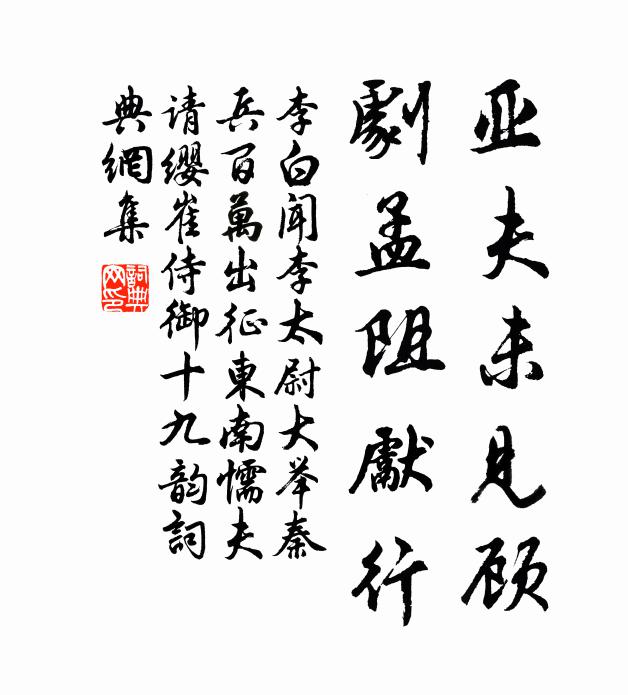 亚夫未见顾
劇孟阻獻行
李白闻李太尉大举秦
兵百萬出征東南懦夫
请缨崔侍御十九韵詞
典網集
詞典
网印